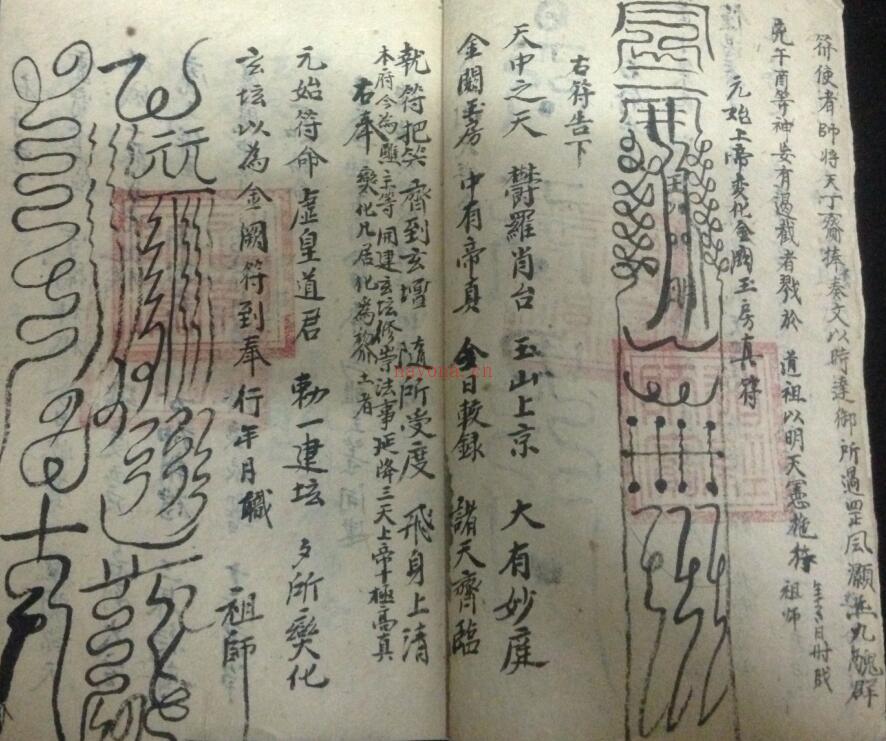 符使者師將天丁齋捧奏文以時達御所過罡風灝炁九醜群
兇午酉等神妄有遏截者戮於 道祖以明天憲施符 祖師
元始上帝變化金闕玉房真符
右符告下
天中之天 鬱羅肖台 玉山上京 大有妙庭
金闕玉房 中有帝真 今日敕録 諸天齊臨
執符把籙 齊到玄壇 隨所受度 飛身上清
本府今為 等開建玄坛修崇法事延降三天上帝十極高真
右奉 變化凡居化為 土者
元始符命 虛皇道君 勅一建坛 多所變化
玄坛以為金闕符到奉行年月職
祖師
nayona.cn